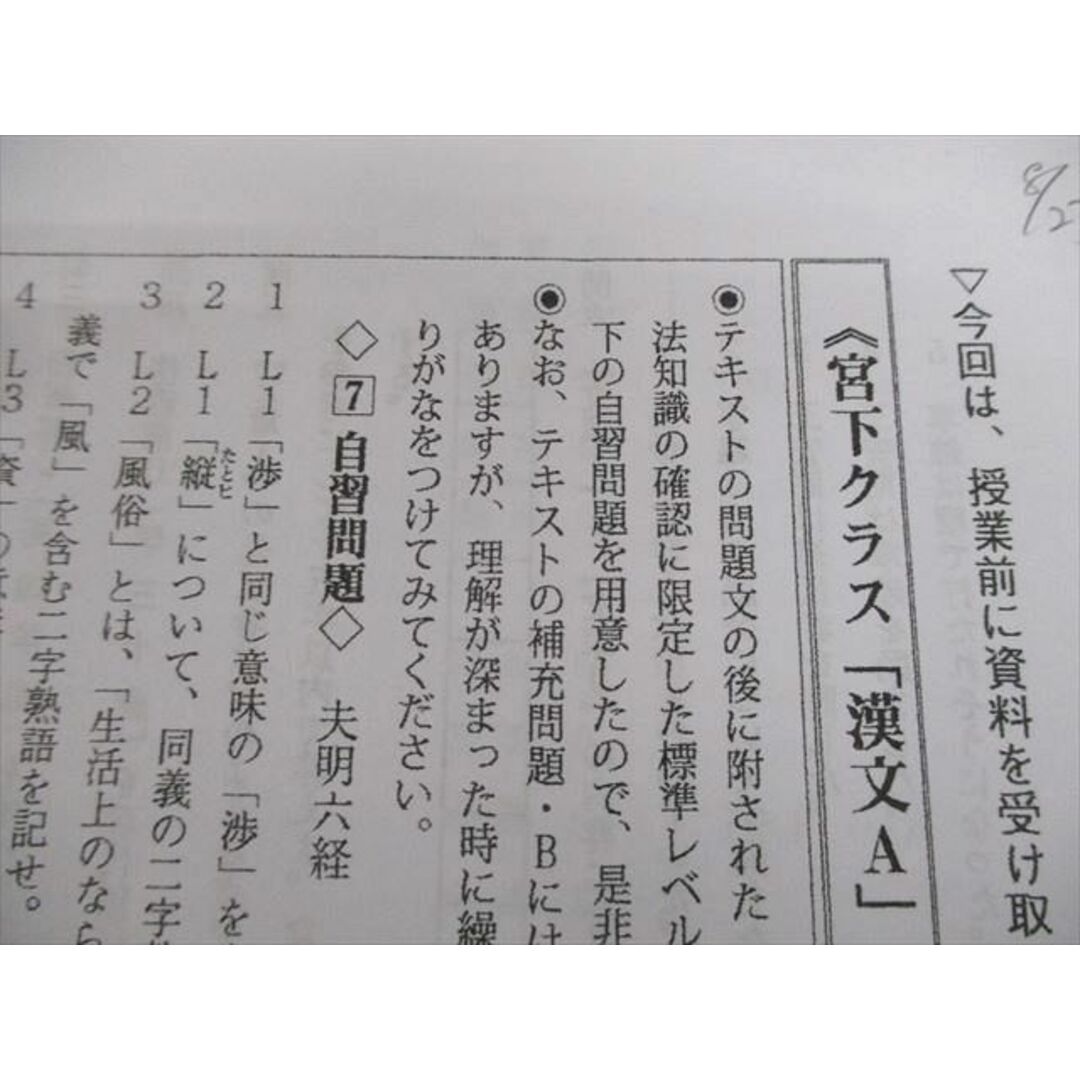 8/27
▽今回は、授業前に資料を受け取
《宮下クラス「漢文A」
◉テキストの問題文の後に附された
法知識の確認に限定した標準レベル
下の自習問題を用意したので、是非
◉なお、テキストの補充問題・Bには
ありますが、理解が深まった時に繰
りがなをつけてみてください。
◇7自習問題◇ 夫明六経
1 L1「渉」と同じ意味の「渉」を
2 L1「縦」について、同義の二字
たとヒ
3 L2「風俗」とは、「生活上のなら
義で「風」を含む二字熟語を記せ。
4 L3「資」の